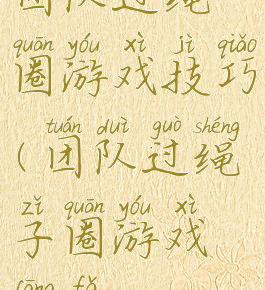 团队过绳
quān yóu xì jì qiǎo
圈游戏技巧
( tuán duì guò shéng
(团队过绳
zǐ quān yóu xì
子圈游戏